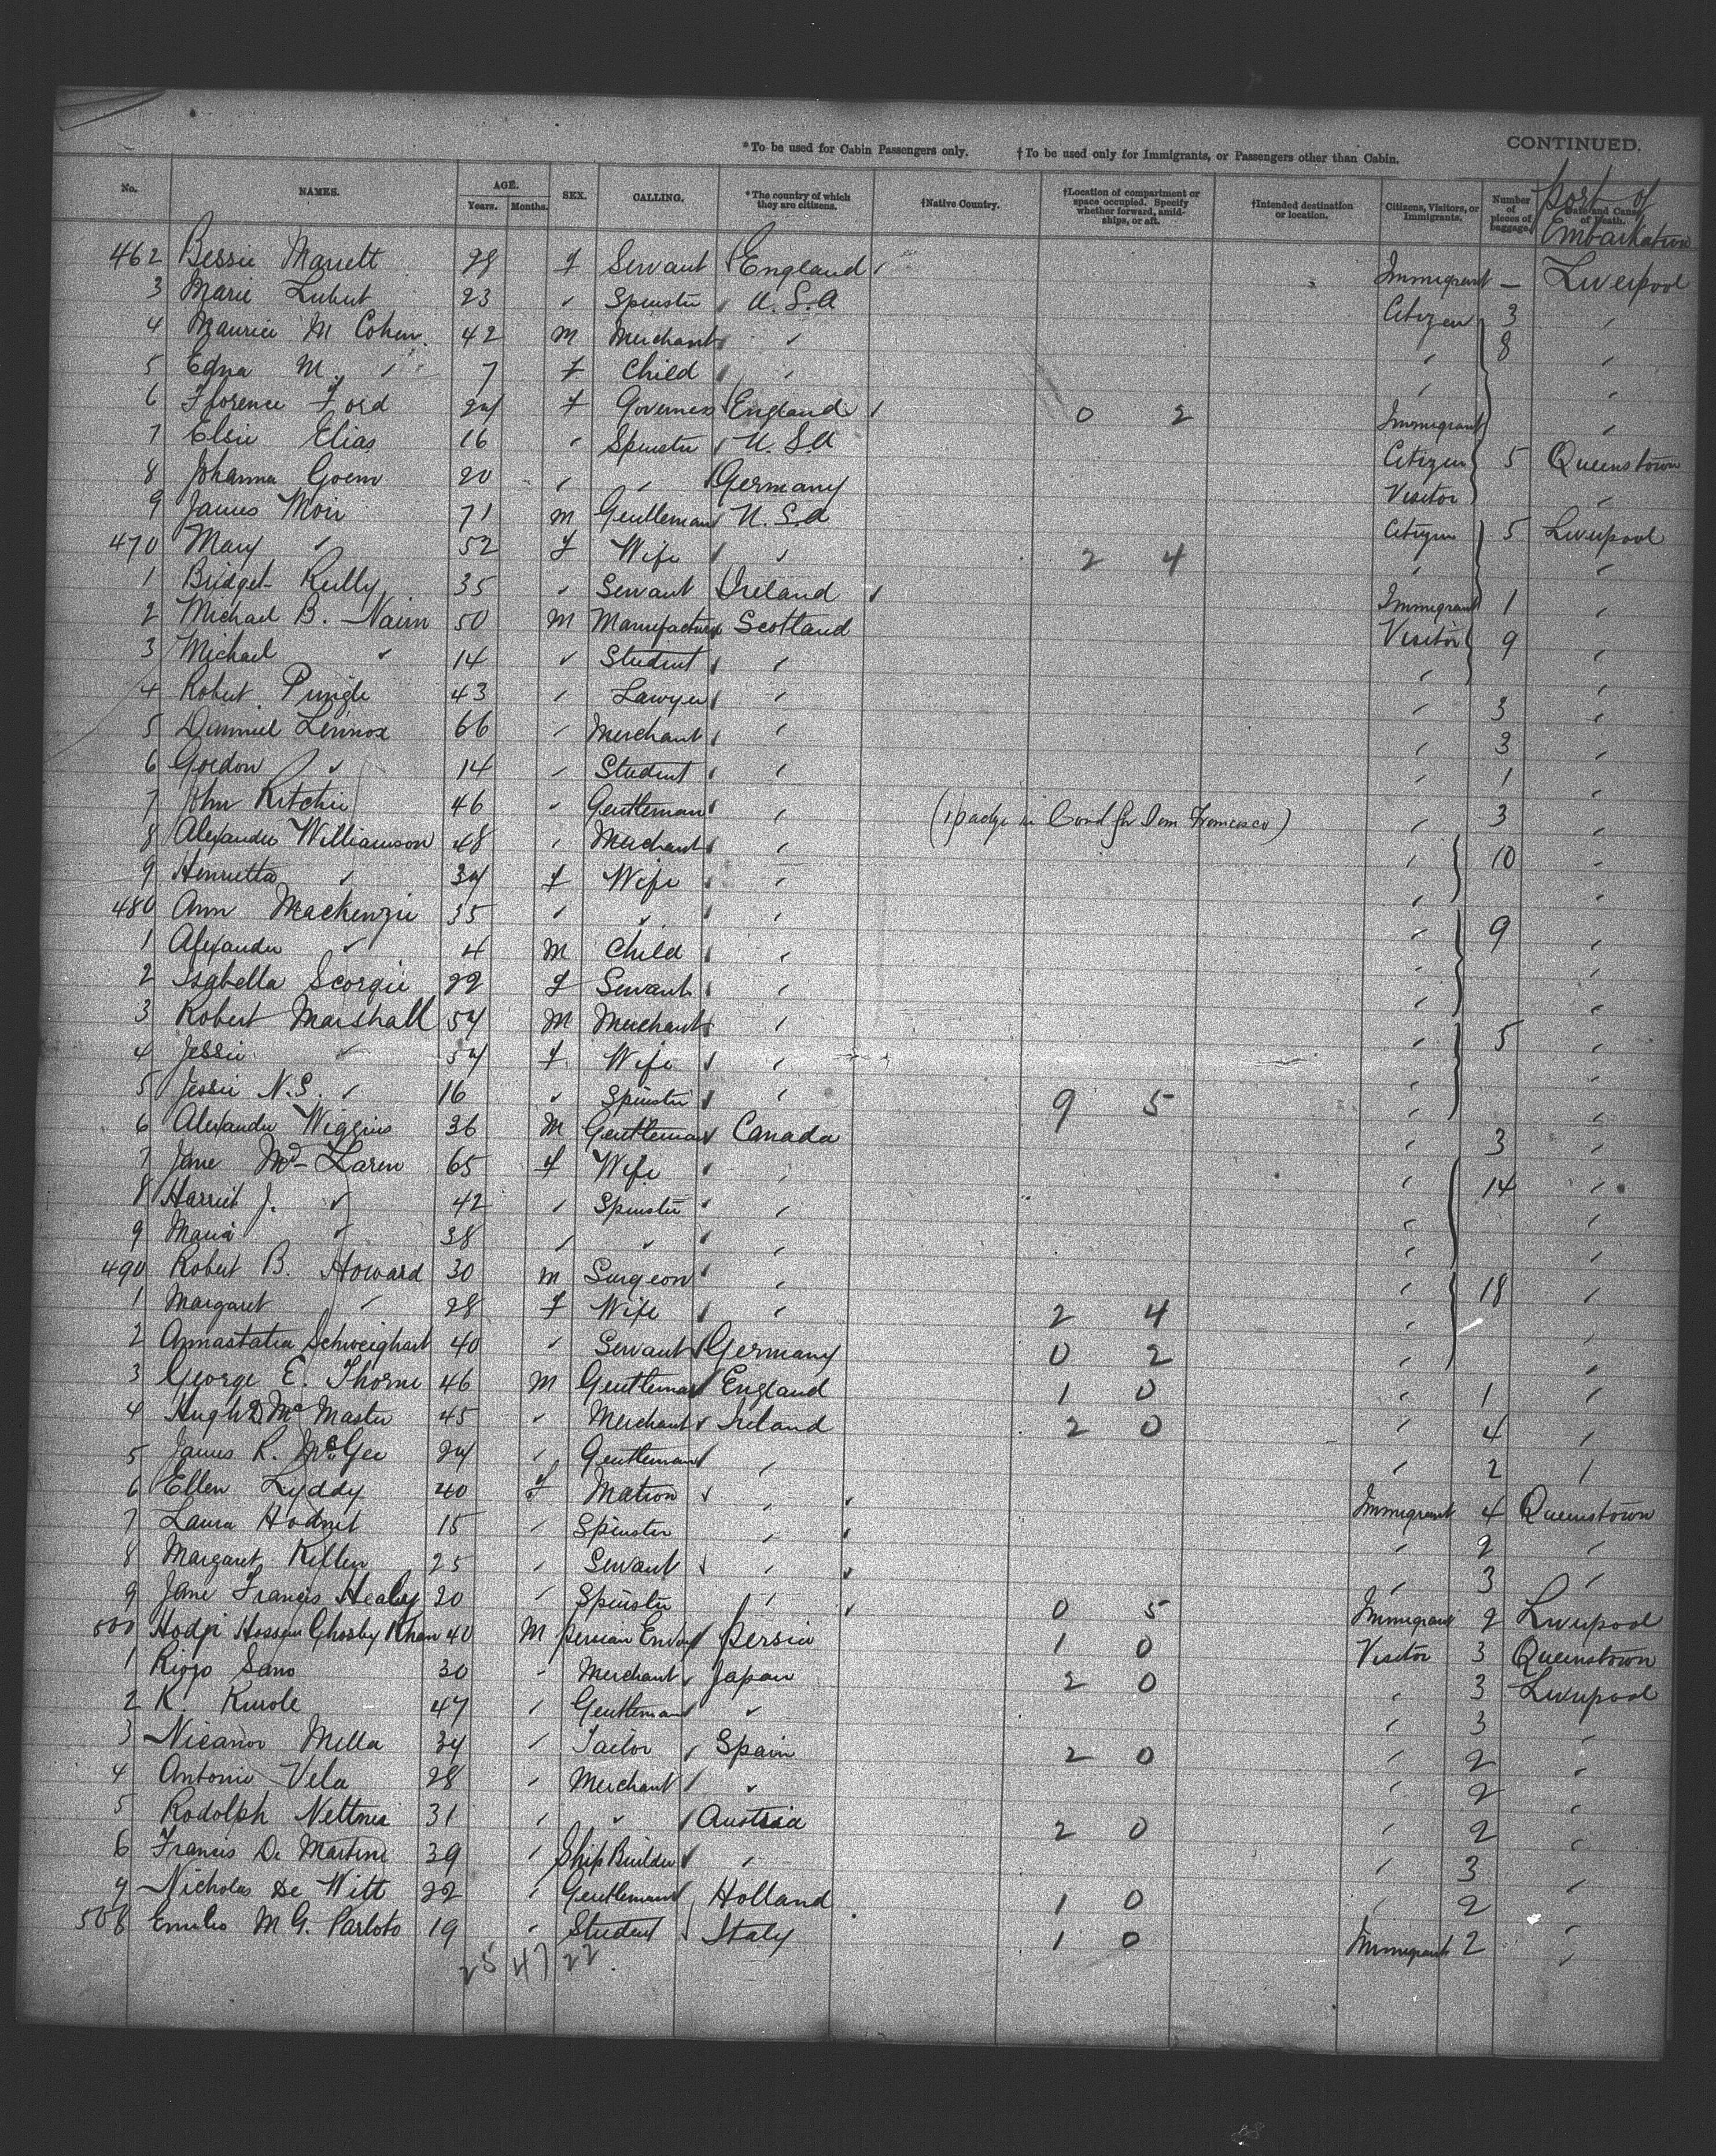 CONTINUED.
*To be used for Cabin Passengers only. †To be used only for Immigrants, or Passengers other than Cabin.
No. NAMES. AGE. Years. Months. SEX. CALLING. *The country of which they are citizens. †Native Country. †Location of compartment or space occupied. Specify whether forward, amidships, or aft. †Intended destination or location. Citizens, Visitors, or Immigrants. Number of pieces of baggage. Date and Cause of Death. Port of Embarkation
462 Bessie Marrett 28 F Servant England Immigrant – Liverpool
3 Marie 23 " Spinster U.S.A Citizen 3 "
4 Maurice M Cohen 42 M Merchant " " 8 "
5 Edna M. " 7 F Child " " "
6 Florence Ford 24 F Governess England 0 2 Immigrant "
7 Elsie Elias 16 " Spinster U.S.A Citizen 5 Queenstown
8 Johanna 20 " " Germany Visitor "
9 James Moir 71 M Gentleman U.S.A Citizen 5 Liverpool
470 Mary " 52 F Wife " 2 4 " "
1 Bridget Reilly 35 " Servant Ireland Immigrant 1 "
2 Michael B. Nairn 50 M Manufacturer Scotland Visitor 9 "
3 Michael " 14 " Student " " "
4 Robert Pringle 43 " Lawyer " " 3 "
5 Lennox 66 " Merchant " " 3 "
6 Gordon " 14 " Student " " 1 "
7 John Ritchie 46 " Gentleman " " 3 "
8 Alexander Williamson 48 " Merchant " " 10 "
9 Henrietta " 34 F Wife " " "
480 Ann Mackenzie 35 " " " " 9 "
1 Alexander " 4 M Child " " "
2 Isabella Scorgie 22 F Servant " " "
3 Robert Marshall 54 M Merchant " " 5 "
4 Jessie " 54 F. Wife " " "
5 Jessie N.S. " 16 " Spinster " 9 5 " "
6 Alexander Wiggins 36 M Gentleman Canada " 3 "
7 Jane Mc Laren 65 F Wife " " 14 "
8 Harriet J. " 42 " Spinster " " "
9 Maria " 38 " " " " "
490 Robert B. Howard 30 M Surgeon " " 18 "
1 Margaret " 28 F Wife " 2 4 " "
2 Annastatia Schweighart 40 " Servant Germany 0 2 " "
3 George E. Thorne 46 M Gentleman England 1 0 " 1 "
4 Hugh D Mc Master 45 " Merchant Ireland 2 0 " 4 "
5 James R. McGee 24 " Gentleman " " 2 "
6 Ellen Lyddy 40 F Matron " Immigrant 4 Queenstown
7 Laura Hodnet 15 " Spinster " " 2 "
8 Margaret Killen 25 " Servant " " 3 "
9 Jane Francis Healey 20 " Spinster " 0 5 Immigrant 2 Liverpool
500 Khan 40 M Persian Envoy Persia 1 0 Visitor 3 Queenstown
1 Riozo Sano 30 " Merchant Japan 2 0 " 3 Liverpool
2 K. 47 " Gentleman " " 3 "
3 Nicanor Mella 34 " Tailor Spain 2 0 " 2 "
4 Antonio Vela 28 " Merchant " " 2 "
5 Rodolph 31 " " Austria 2 0 " 2 "
6 Francis De Martini 39 " Ship Builder " " 3 "
9 Nicholas De Witt 22 " Gentleman Holland 1 0 " 2 "
508 Emilio M G. Parloto 19 " Student Italy 1 0 Immigrant 2 "
25 47 22